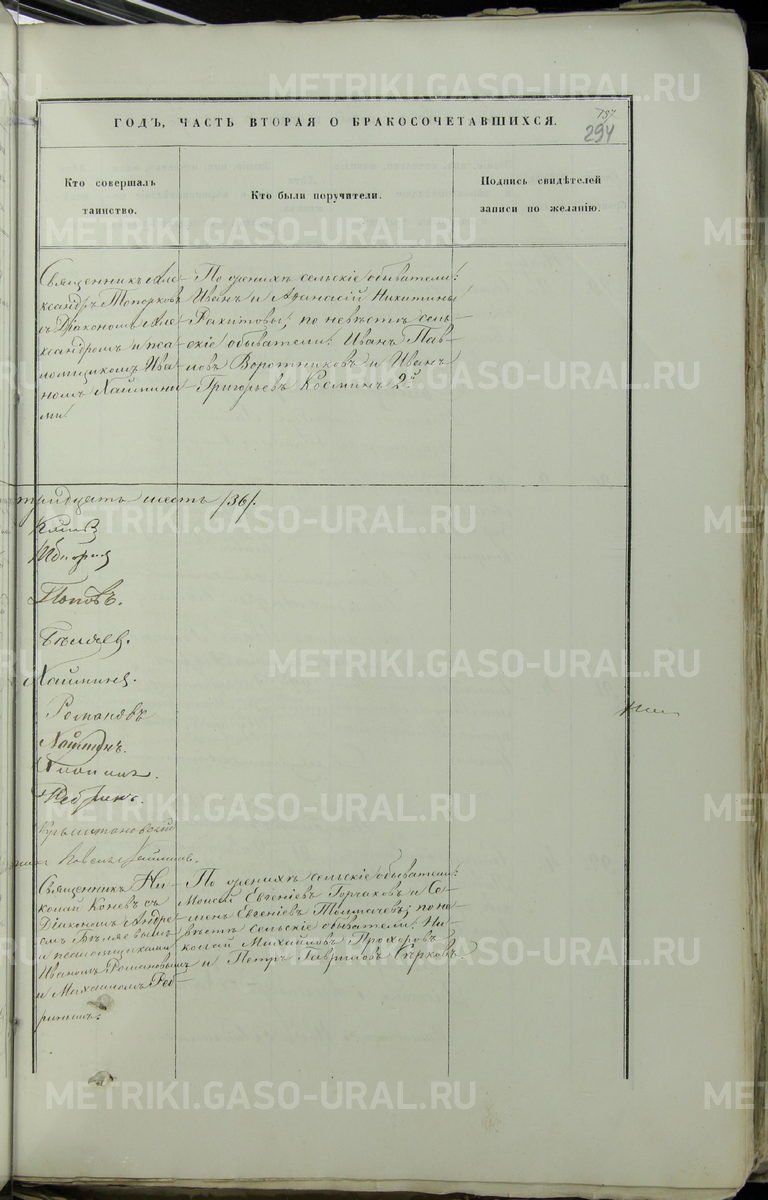 197
294
ГОДЪ, ЧАСТЬ ВТОРАЯ О БРАКОСОЧЕТАВШИХСЯ.
Кто совершалъ
таинство.
Кто были поручители.
Подпись свидѣтелей
записи по желанію.
Священникъ Але-
ксандръ Топорковъ
съ Діакономъ Але-
ксандромъ и пса-
ломщикомъ Ива-
номъ
ми.
По женихѣ сельскіе обыватели:
Иванъ и Аѳанасій Никитины
по невѣстѣ сель-
скіе обыватели: Иванъ Пав-
ловъ Воротниковъ и Иванъ
Григорьевъ Косминъ 2й.
тридцать шесть /36/.
Поповъ.
Бѣляев.
Романовъ
Священникъ Ни-
колай Коневъ съ
Діакономъ Андре-
емъ Бѣляевымъ
и псаломщиками
Иваномъ Романовымъ
и Михаиломъ Ред-
ринымъ.
По женихѣ сельскіе обыватели:
Моисей Евгеніевъ Горчаковъ и Се-
менъ Евгеніевъ Толмачевъ; по не-
вѣстѣ сельскіе обыватели: Ни-
колай Михайловъ Прохоровъ
и Петръ Гавриловъ Сѣрковъ.
METRIKI.GASO-URAL.RU